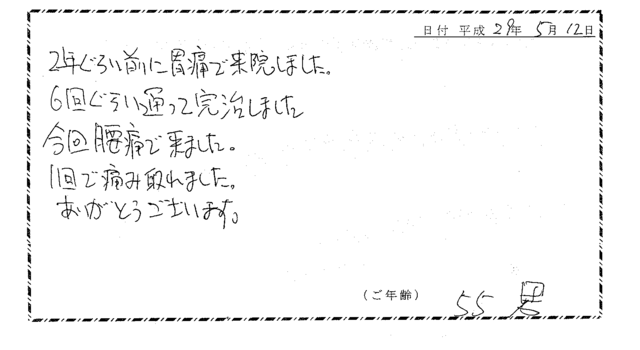 日付 平成 29年 5月 12日
2年ぐらい前に胃痛で来院しました。
6回ぐらい通って完治しました
今回腰痛で来ました。
1回で痛み取れました。
ありがとうございます。
(ご年齢) 55 男